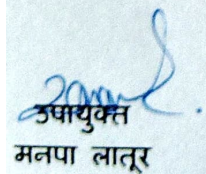 उपायुक्त
मनपा लातूर